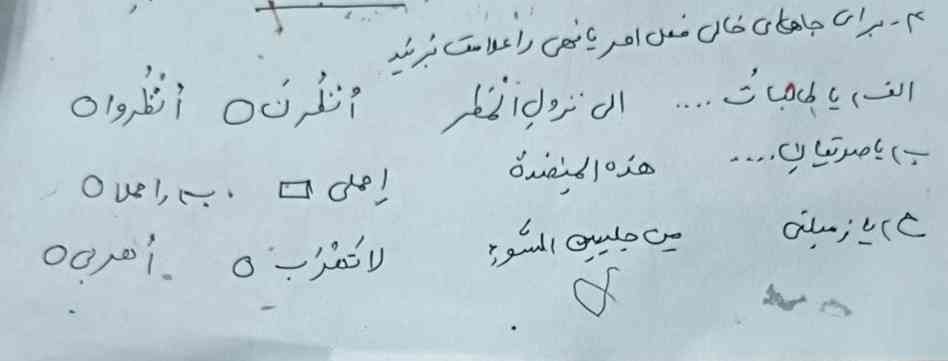 ۳- برای جاهای خالی فعل امر یا نهی را علامت بزنید
الف) یا طالباتُ .... الی نزولِ المَطر اُنظُرنَ ○ اُنْظُروا ○
ب) یا صدیقانِ .... هذه المِنضدةُ اِحملی □ ب) اِحملا ○
ج) یا زمیلتی من جلیسِ السّوءِ لا تَقْرَب ○ اُهربی ○